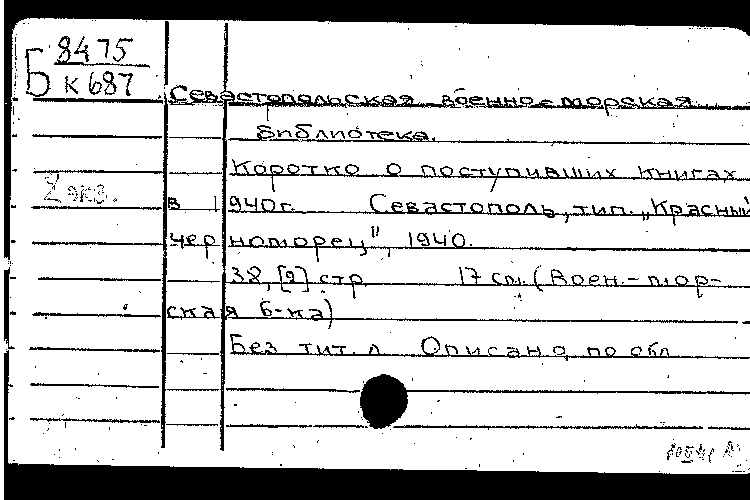 Б 8475
К 687
Севастопольская военно-морская
библиотека.
Коротко о поступивших книгах
2 экз.
в 1940г. Севастополь, тип. „Красный
черноморец", 1940.
38, [2] стр. 17 см. (Воен.-мор-
ская б-ка)
Без тит. л. Описано по обл.